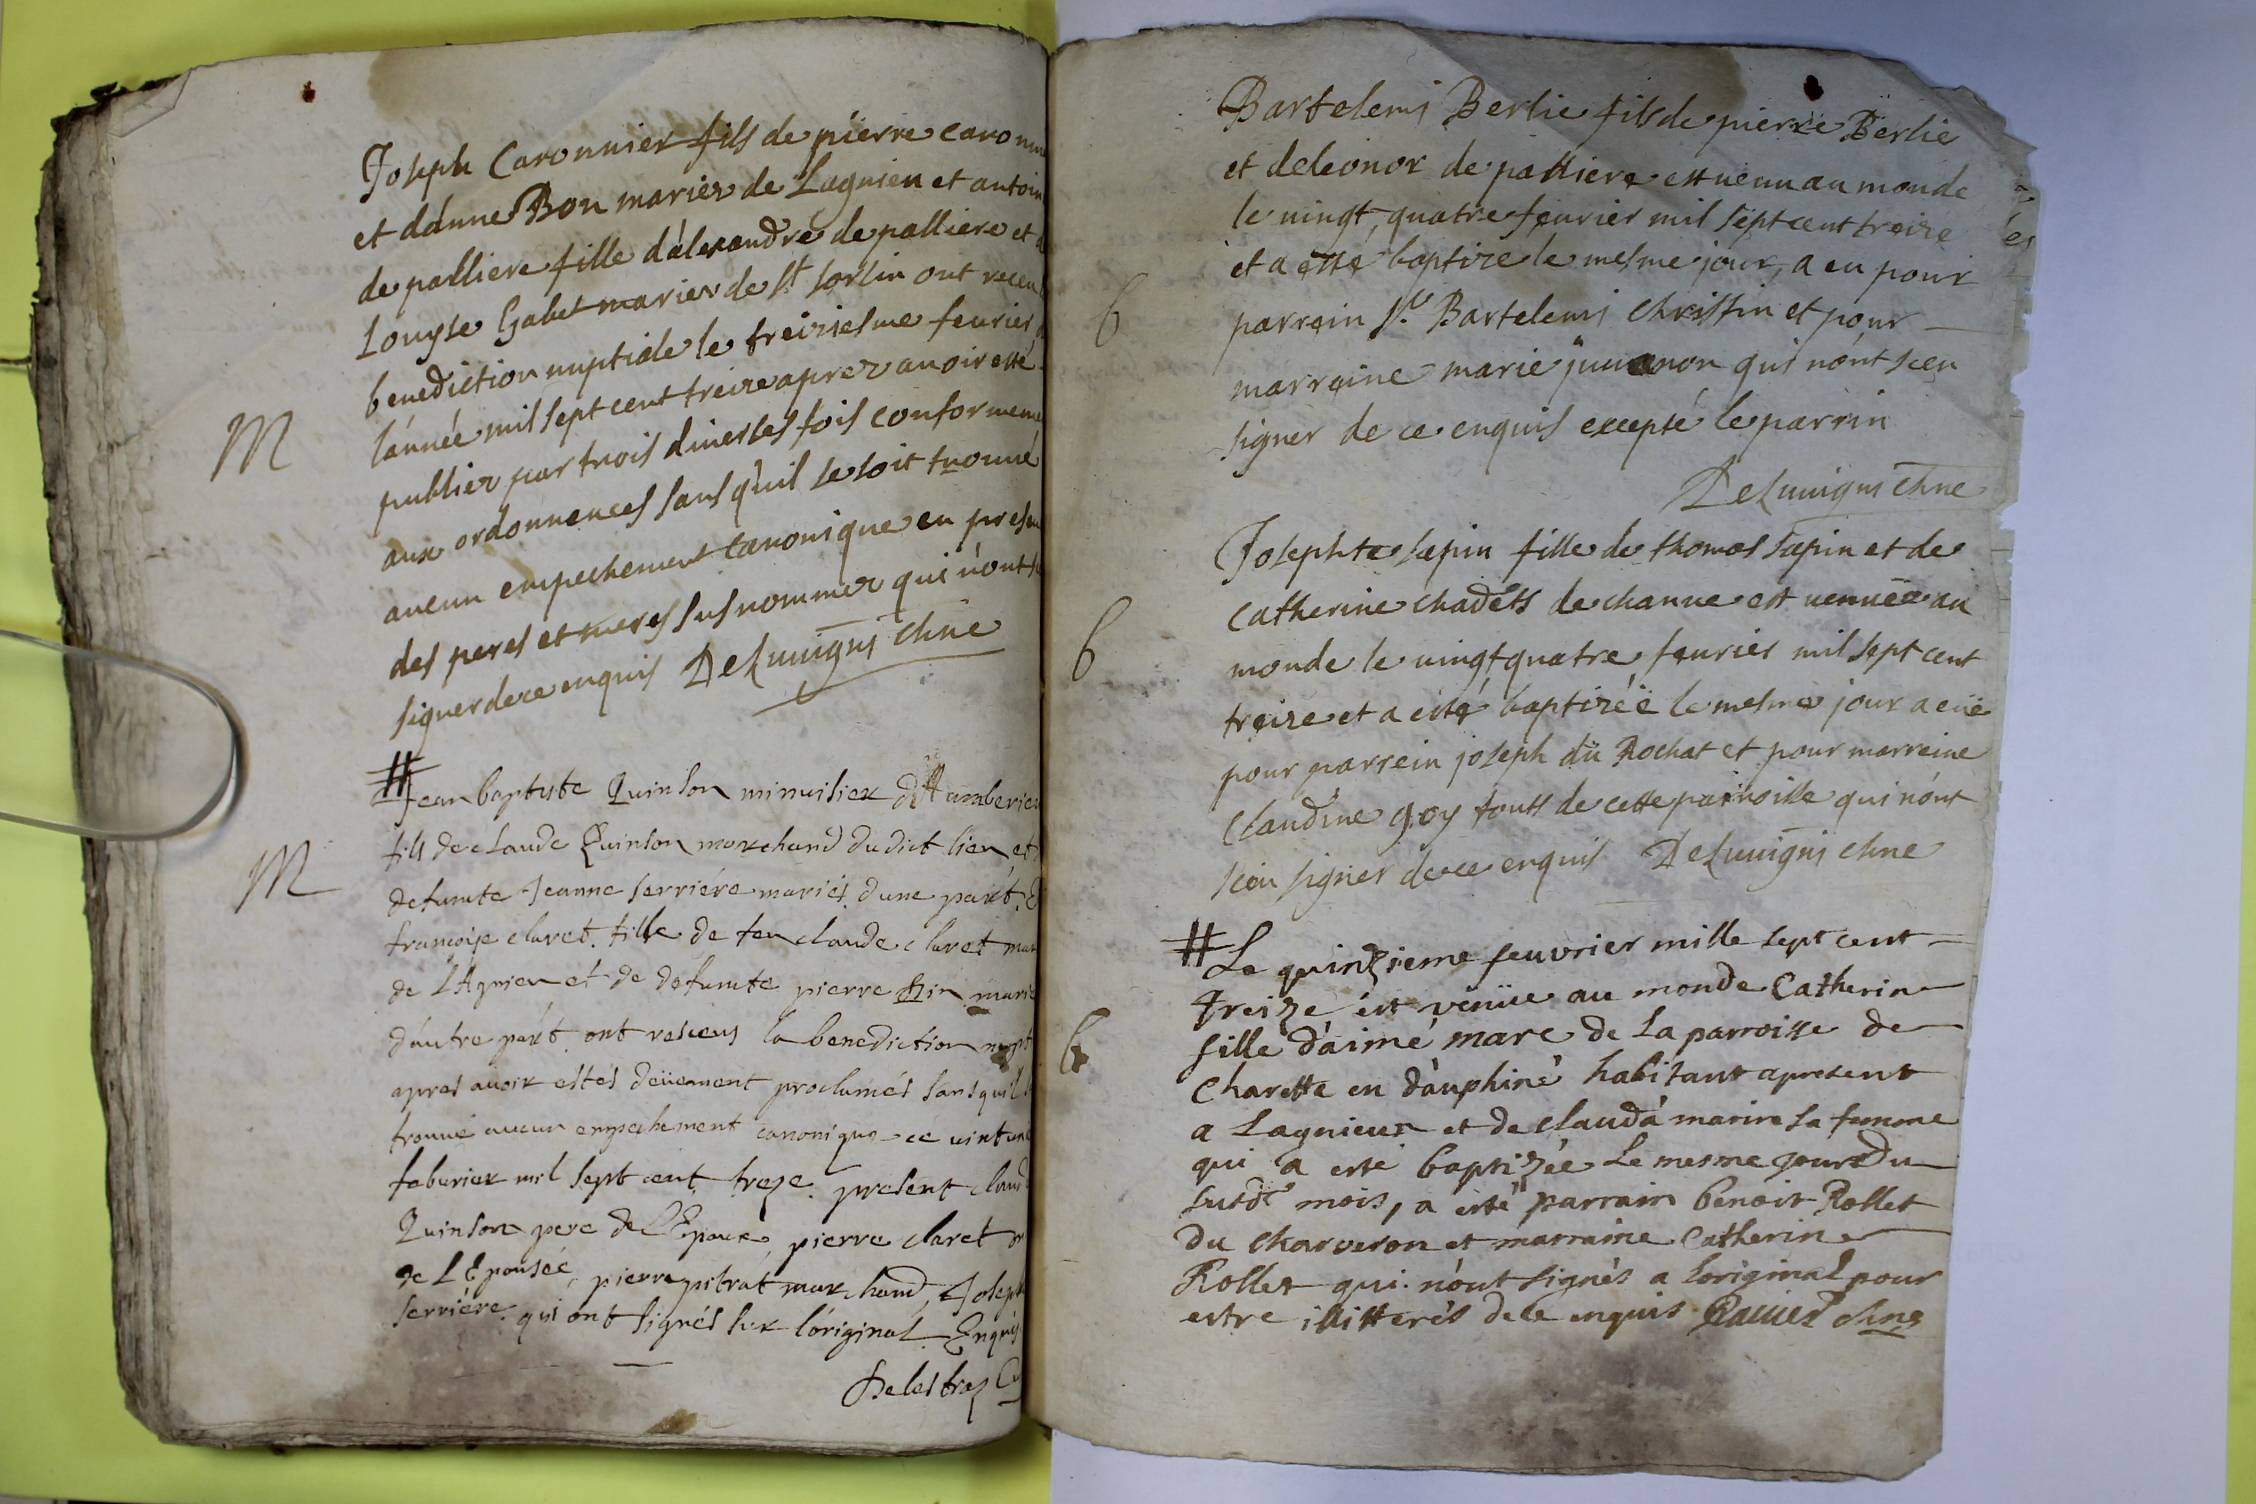 Joseph Caronnier fils de pierre caronn
et dánne Bon mariez de Lagnieu et antoin
de palliere fille dálexandre de palliere et
Louyse Gabet mariez de St sorlin ont receu
benediction nuptiale le treiziesme feurier
lánnée mil sept cent treize aprez auoir esté
publiez par trois diuerses fois conformeme
aux ordonnences sans q'uil se soit trouué
aucun empechement canonique en presen
des peres et meres sus nommez qui nónt s
signer de ce enquis
M
# Jean baptiste Quinson minuisier dAmberieu
fils de claude Quinson marchand dudict lieu et
defunte Jeanne serriére mariés dune part. E
françoise claret. fille de feu claude claret mar
de LAgnieu et de defunte pierre marie
dáutre párt ont resceus la benediction nupt
apres auoir estes deüement proclamés sans quil
trouué aucun empechement canonique ce uint une
feburier mil sept cent treze. present claud
Quinson pere de LEpoux, pierre claret
de LEpousée, pierre pitrat marchand, Joseph
serriére. qui ont signés sur lóriginal Enquis
Delestraz
M
Bartelemi Berlie fils de pierre Berlie
et deleonor de palliere est uenu au monde
le uingt quatre feurier mil sept cent treize
et a esté baptize le mesme jour, a eu pour
parrein Sr Bartelemi Christin et pour
marraine marie qui nónt sceu
signer de ce enquis excepté le parrin
b
Josephte sapin fille de thomas sapin et de
catherine chadéts de chanue est uenuëe au
monde le uingt quatre feurier mil sept cent
treize et a esté baptizéë le mesme jour a euë
pour parrein joseph dü Rochat et pour marreine
claudine goy touts de cette parroisse qui nónt
sceu signer de ce enquis
b
# Le quinzieme feuvrier mille sept cent
treize est venüe au monde Catherin
fille dáimé marc de La parroisse de
Charette en dáuphiné habitant apresent
a Lagnieux et de clauda marin sa femme
qui a esté baptizée Le mesme jour du
susdt mois, a esté parrain benoit Rollet
du charveron et marraine Catherine
Rollet qui nónt signés a lóriginal pour
estre illitterés de ce enquis
b